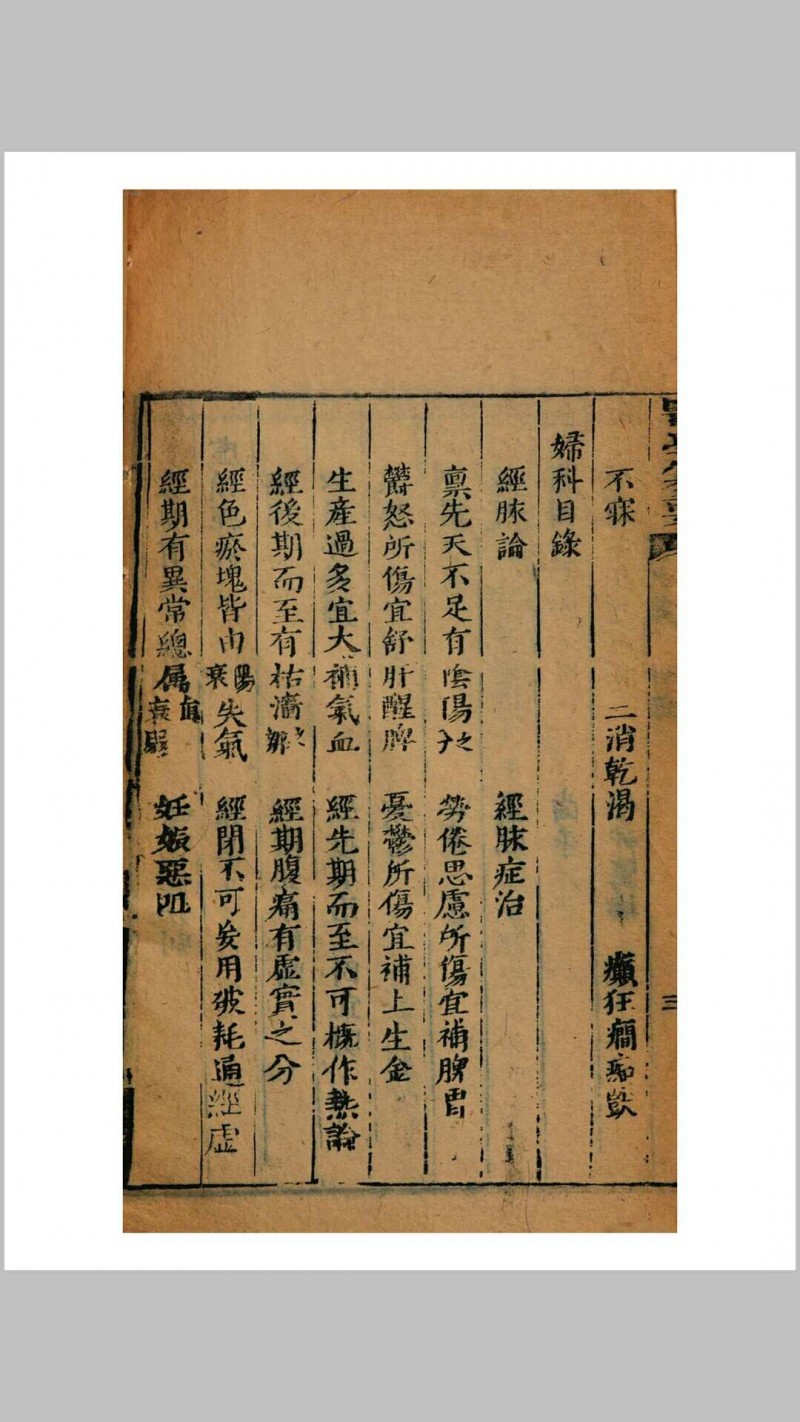 不寐 消乾渴 癲狂癇痴獃
婦科目錄
經脉論 經脉症治
禀先天不足有陰陽 勞倦思慮所傷宜補脾胃
欝怒所傷宜舒肝醒脾 憂鬱所傷宜補土生金
生產過多宜大補氣血 經先期而至不可概作熱論
經後期而至有枯濇 經期腹痛有虛實之分
經色瘀塊皆由陽衰失氣 經閉不可妄用破耗通經虛
經期有異常總属 妊娠惡阻
三